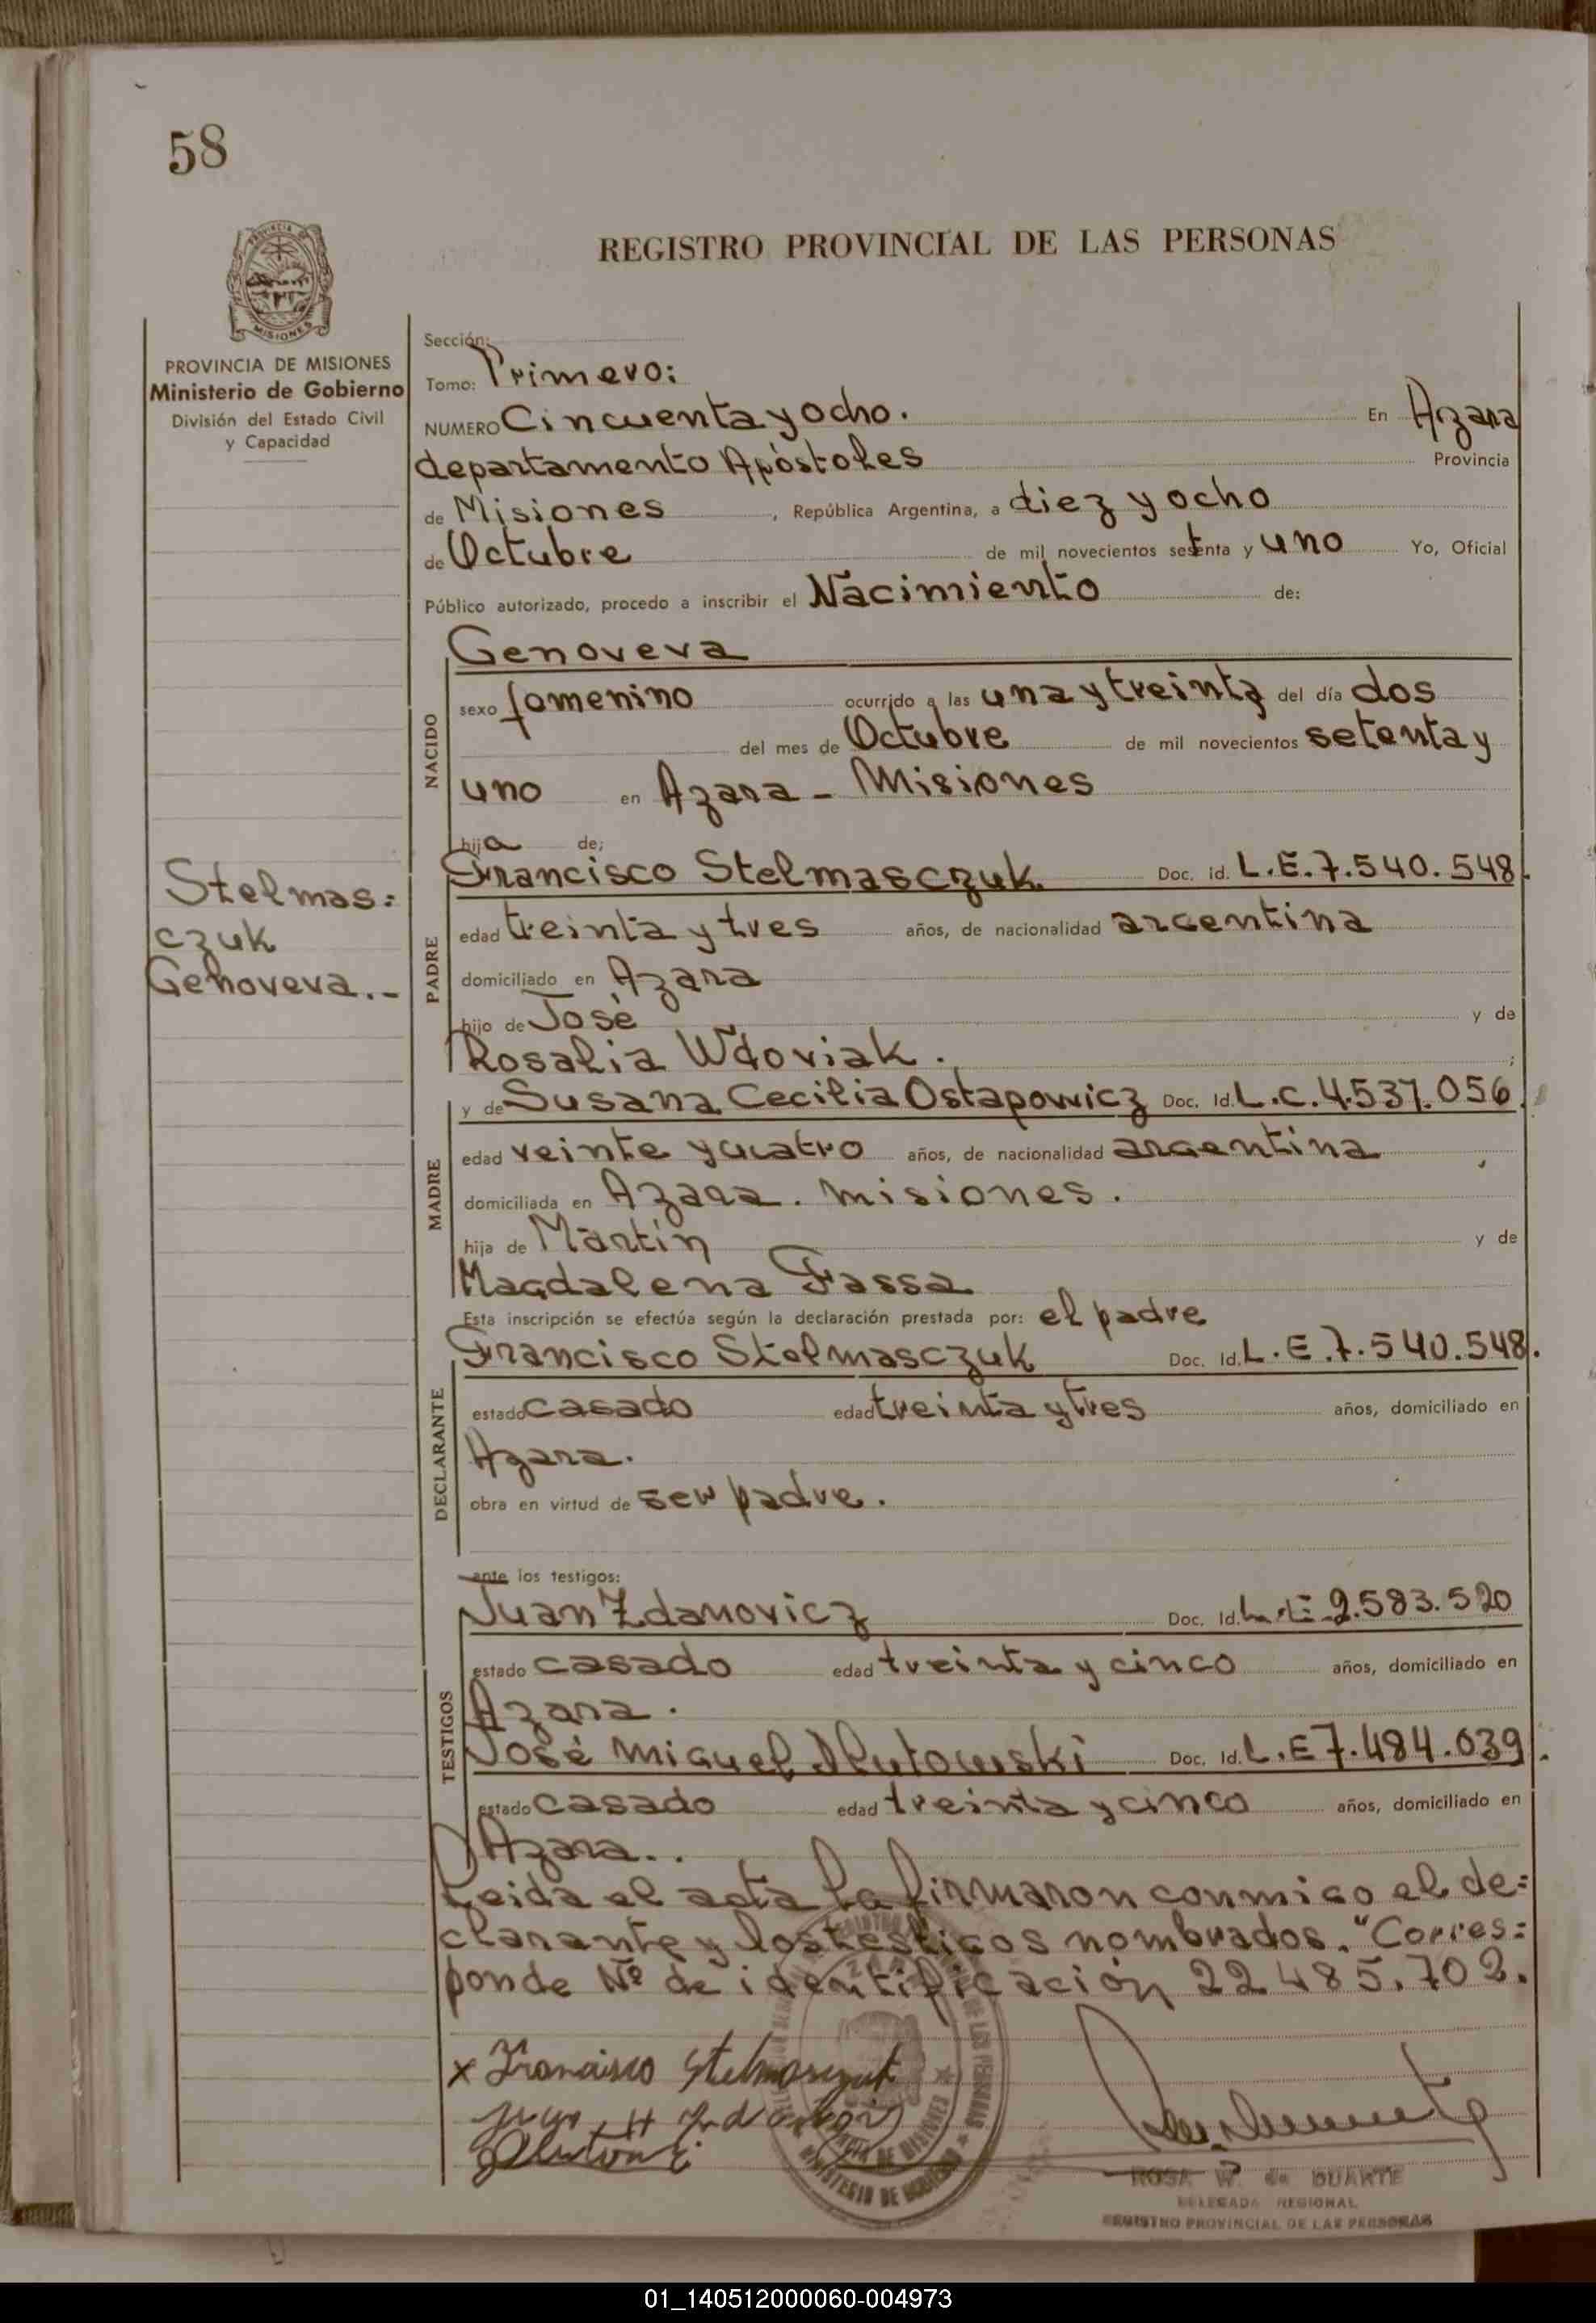 58
REGISTRO PROVINCIAL DE LAS PERSONAS
MISIONES
PROVINCIA DE MISIONES
Ministerio de Gobierno
División del Estado Civil
y Capacidad
Sección:
Tomo: Primero:
NUMERO Cincuenta y ocho. En Azara
departamento Apóstoles Provincia
de Misiones, República Argentina, a diez y ocho
de Octubre de mil novecientos setenta y uno Yo, Oficial
Público autorizado, procedo a inscribir el Nacimiento de:
NACIDO
Genoveva
sexo femenino ocurrido a las una y treinta del día dos
del mes de Octubre de mil novecientos setenta y
uno en Azara - Misiones
hija de;
Stelmas=
czuk
Genoveva.-
PADRE
Francisco Stelmasczuk Doc. id. L.E.7.540.548.
edad treinta y tres años, de nacionalidad argentina
domiciliado en Azara
hijo de José y de
Rosalia Wdoviak. ;
MADRE
y de Susana Cecilia Ostapowicz Doc. Id. L.C.4.537.056.
edad veinte y cuatro años, de nacionalidad argentina
domiciliada en Azara. misiones.
hija de Martín y de
Magdalena Fassa
Esta inscripción se efectúa según la declaración prestada por: el padre
DECLARANTE
Francisco Stelmasczuk Doc. Id. L.E.7.540.548.
estado casado edad treinta y tres años, domiciliado en
Azara.
obra en virtud de ser padre.
ante los testigos:
TESTIGOS
Juan Zdanovicz Doc. Id. 2.583.520
estado casado edad treinta y cinco años, domiciliado en
Azara.
José Miguel Doc. Id. L.E 7.484.039.
estado casado edad treinta y cinco años, domiciliado en
Azara..
Leida el acta la firmaron conmigo el de=
clarante y los testigos nombrados. "Corres=
ponde Nº de identificación 22485.702.
x Francisco Stelmasczuk
MINISTERIO DE GOBIERNO
ROSA W. de DUARTE
DELEGADA REGIONAL
REGISTRO PROVINCIAL DE LAS PERSONAS
01_140512000060-004973